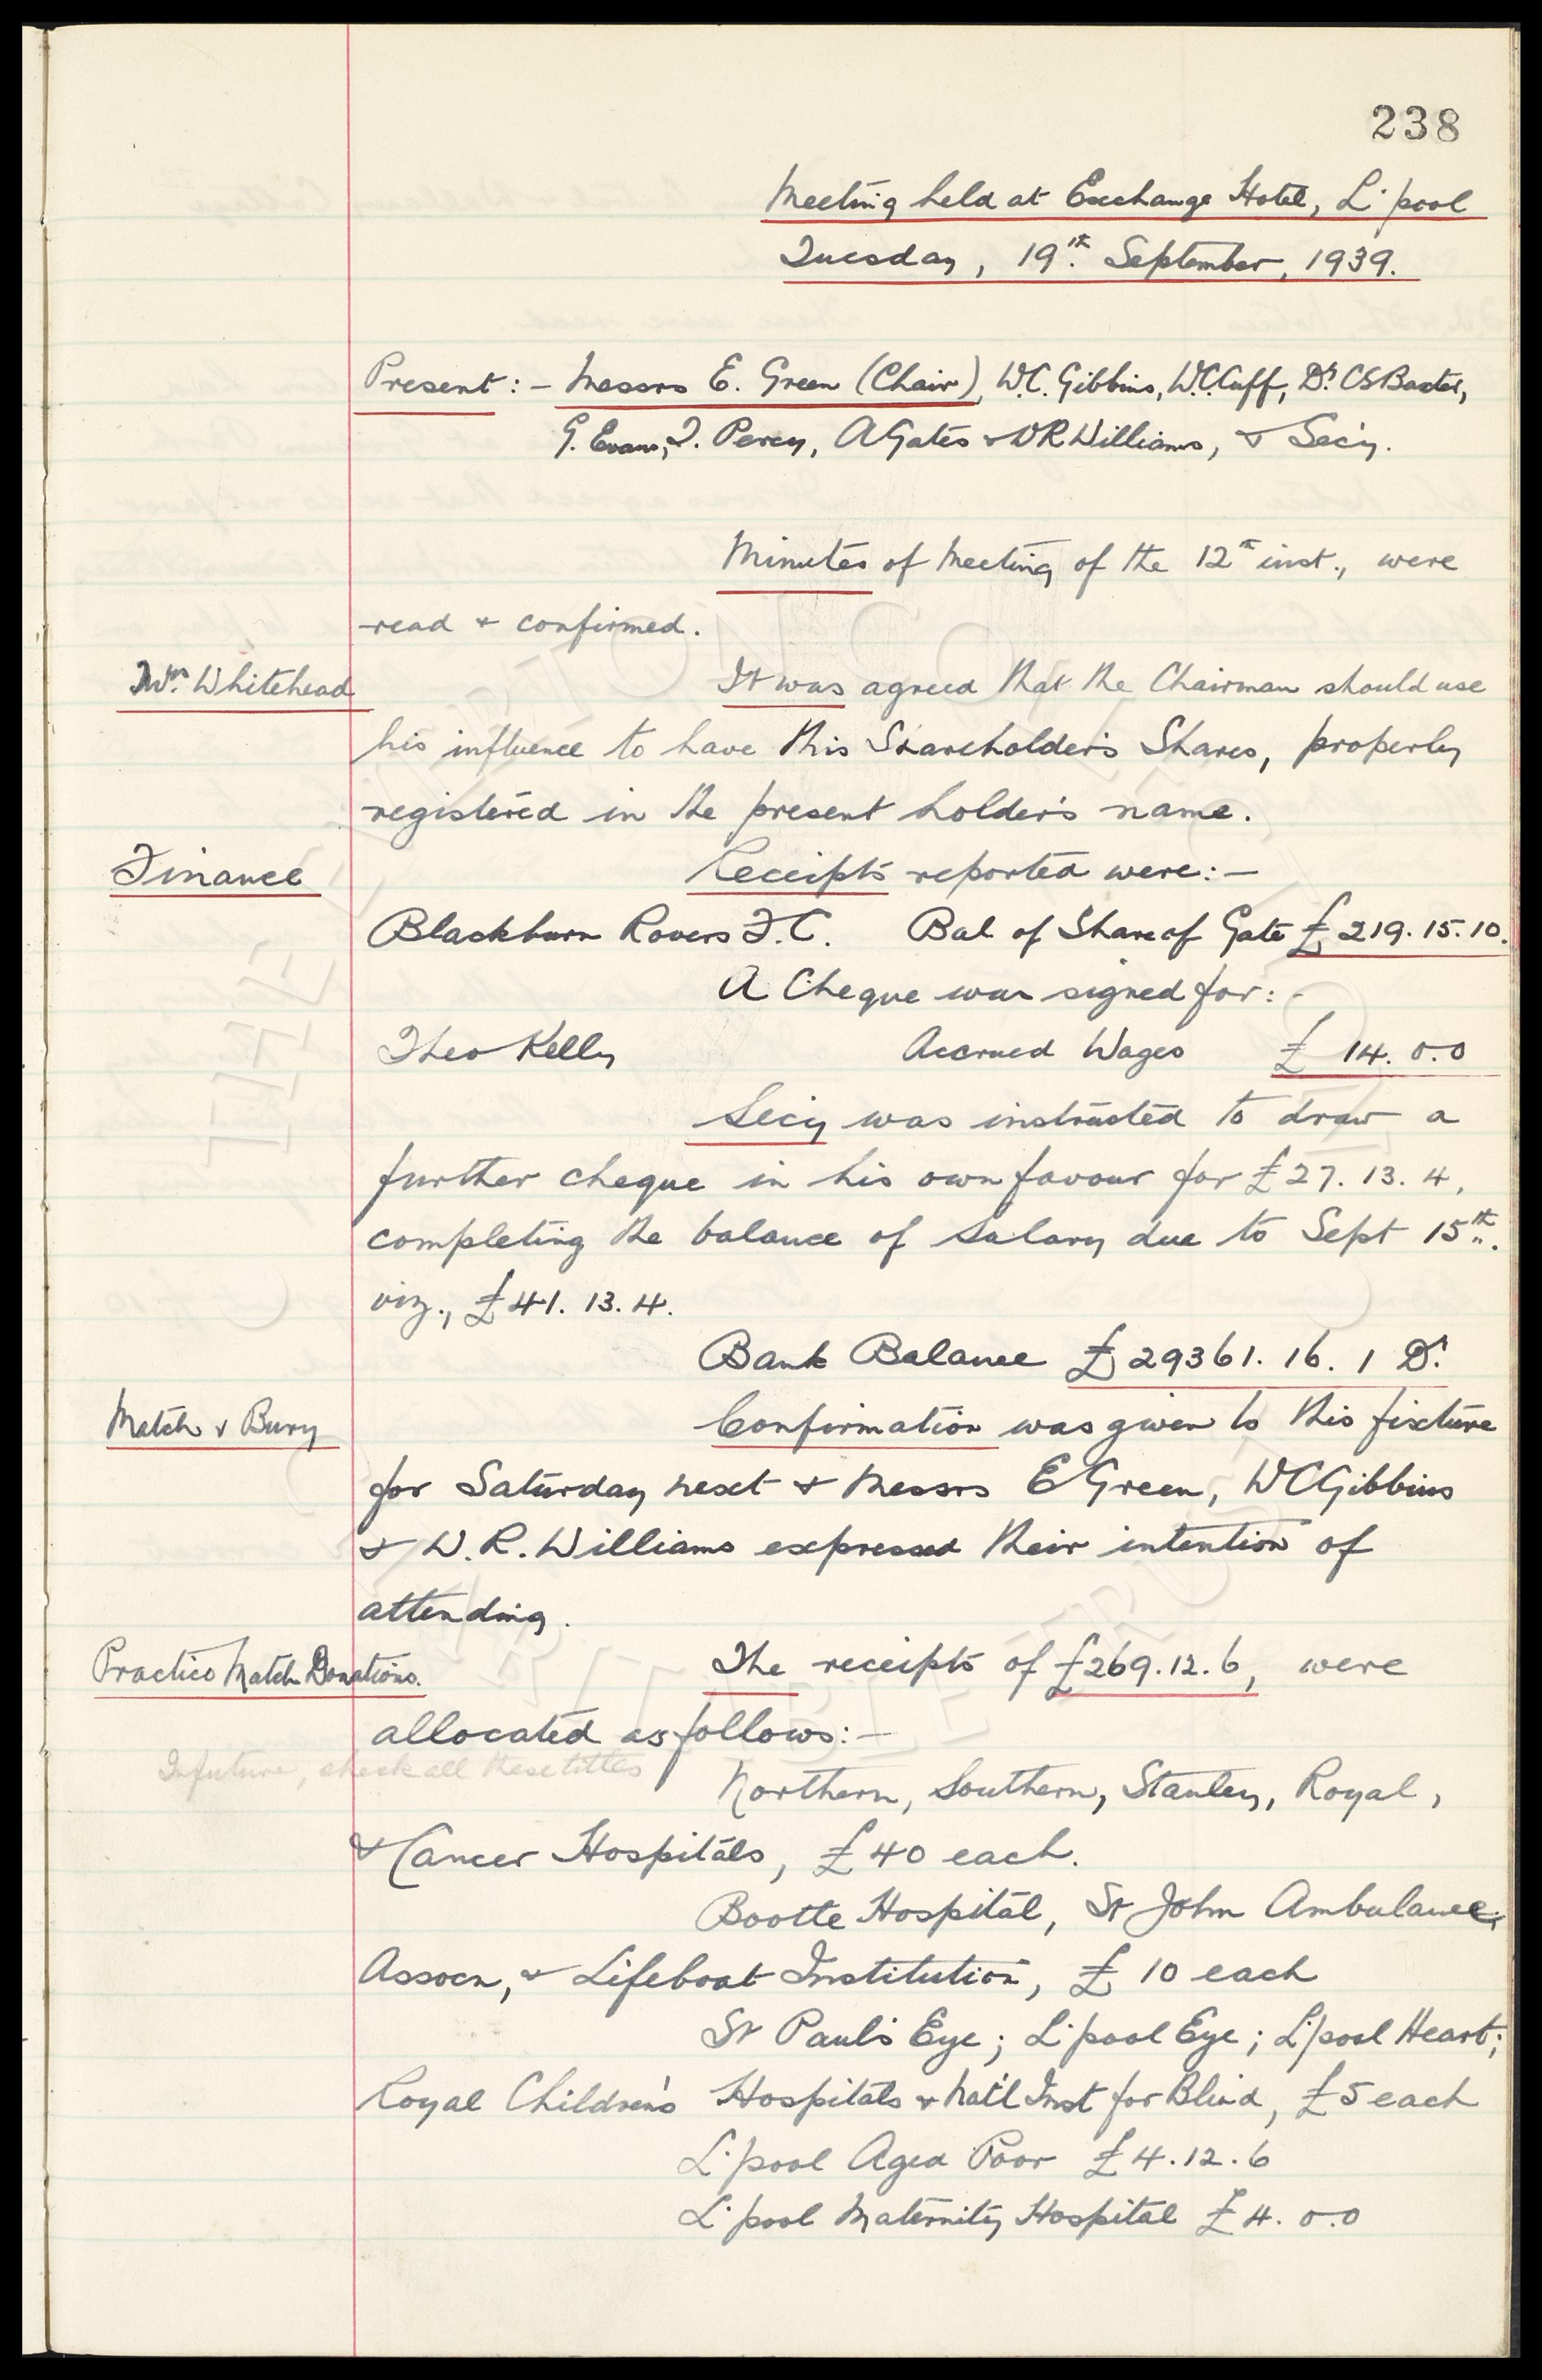 238
Meeting held at Exchange Hotel, L'pool
Tuesday, 19th September, 1939.
Present :- Messrs E. Green (Chair), W.C. Gibbins, W.C. Cuff, Dr CS Baxter,
G. Evans, T. Percy, A Gates & W R Williams, & Secy.
Minutes of Meeting of the 12th inst., were
read & confirmed.
Whitehead
It was agreed that the Chairman should use
his influence to have this Shareholder's Shares, properly
registered in the present holder's name.
Finance
Receipts reported were:-
Blackburn Rovers F.C. Bal of Share of Gate £219.15.10.
A Cheque was signed for:-
Theo Kelly Accrued Wages £ 14. 0.0
Secy was instructed to draw a
further cheque in his own favour for £27. 13. 4,
completing the balance of Salary due to Sept 15th.
viz., £41. 13. 4.
Bank Balance £29361. 16. 1 Dr
Match v Bury
Confirmation was given to this fixture
for Saturday next & Messrs E Green, W C Gibbins
& W. R. Williams expressed their intention of
attending.
Practice Match Donations.
The receipts of £269.12.6, were
allocated as follows:-
In future, check all these titles
Northern, Southern, Stanley, Royal,
& Cancer Hospitals, £40 each.
Bootle Hospital, St John Ambulance
Assocn, & Lifeboat Institution, £10 each
St Paul's Eye; L'pool Eye; L'pool Heart;
Royal Children's Hospitals & Nat'l Inst for Blind, £5 each
L'pool Aged Poor £4.12.6
L'pool Maternity Hospital £4. 0.0